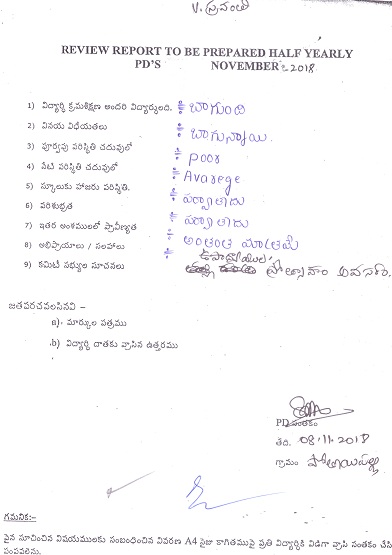 V. స్రవంతి
REVIEW REPORT TO BE PREPARED HALF YEARLY
PD'S NOVEMBER - 2018
1) విద్యార్థి క్రమశిక్షణ అందరి విద్యార్థులది. : బాగుంది
2) వినయ విధేయతలు : బాగున్నాయి.
3) పూర్వపు పరిస్థితి చదువులో : poor
4) నేటి పరిస్థితి చదువులో : Avarege
5) స్కూలుకు హాజరు పరిస్థితి. : పర్వాలేదు
6) పరిశుభ్రత : పర్వాలేదు
7) ఇతర అంశములలో ప్రావీణ్యత : అంతంత మాత్రమే
8) అభిప్రాయాలు / సలహాలు :
9) కమిటీ సభ్యుల సూచనలు ఉపాధ్యాయుల ప్రోత్సాహం అవసరం.
జతపరచవలసినవి –
a). మార్కుల పత్రము
b) విద్యార్థి దాతకు వ్రాసిన ఉత్తరము
PD సంతకం
తేది. 08.11.2018
గ్రామం
గమనిక:-
పైన సూచించిన విషయములకు సంబంధించిన వివరణ A4 సైజు కాగితముపై ప్రతి విద్యార్థికి విడిగా వ్రాసి సంతకం చేసి
పంపవలెను.